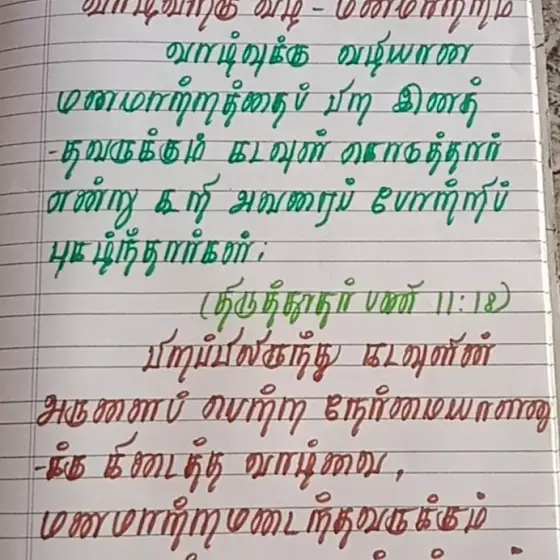 வாழ்வுக்கு வழி - மனமாற்றம்
வாழ்வுக்கு வழியான
மனமாற்றத்தைப் பிற இனத்
-தவருக்கும் கடவுள் கொடுத்தார்
என்று கூறி அவரைப் போற்றிப்
புகழ்ந்தார்கள்:
(திருத்தூதர் பணி 11:18)
பிறப்பிலிருந்து கடவுளின்
அருளைப் பெற்ற நேர்மையாளரு
-க்கு கிடைத்த வாழ்வை,
மனமாற்றமடைந்தவருக்கும்